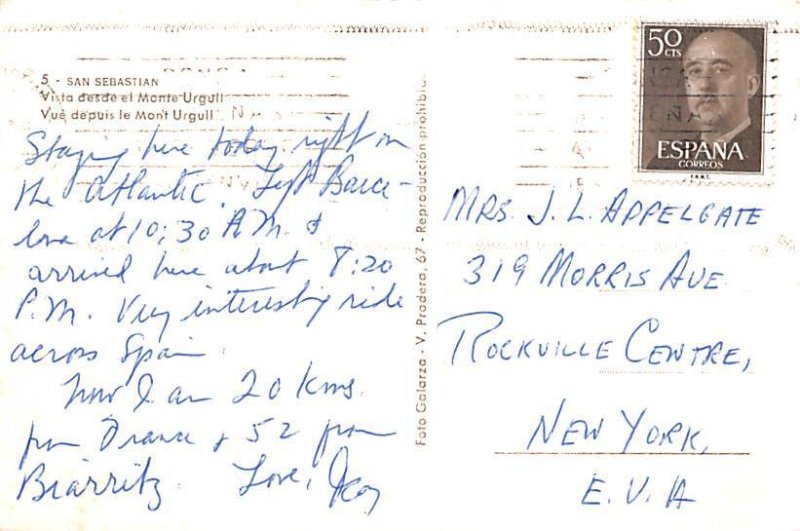 5 - SAN SEBASTIAN
Vista desde el Monte Urgull
Vue depuis le Mont Urgull
Staying here today right on
the Atlantic. Left Barce-
lona at 10:30 A.M. &
arrived here about 8:20
P.M. Very interesting ride
across Spain.
Now I am 20 kms.
from France & 52 from
Biarritz. Love,
Foto Galarza - V. Pradera, 67 - Reproducción prohibida
50 CTS
ESPAÑA
CORREOS
MRS. J. L. APPELGATE
319 MORRIS AVE
ROCKVILLE CENTRE,
NEW YORK,
E.V.A